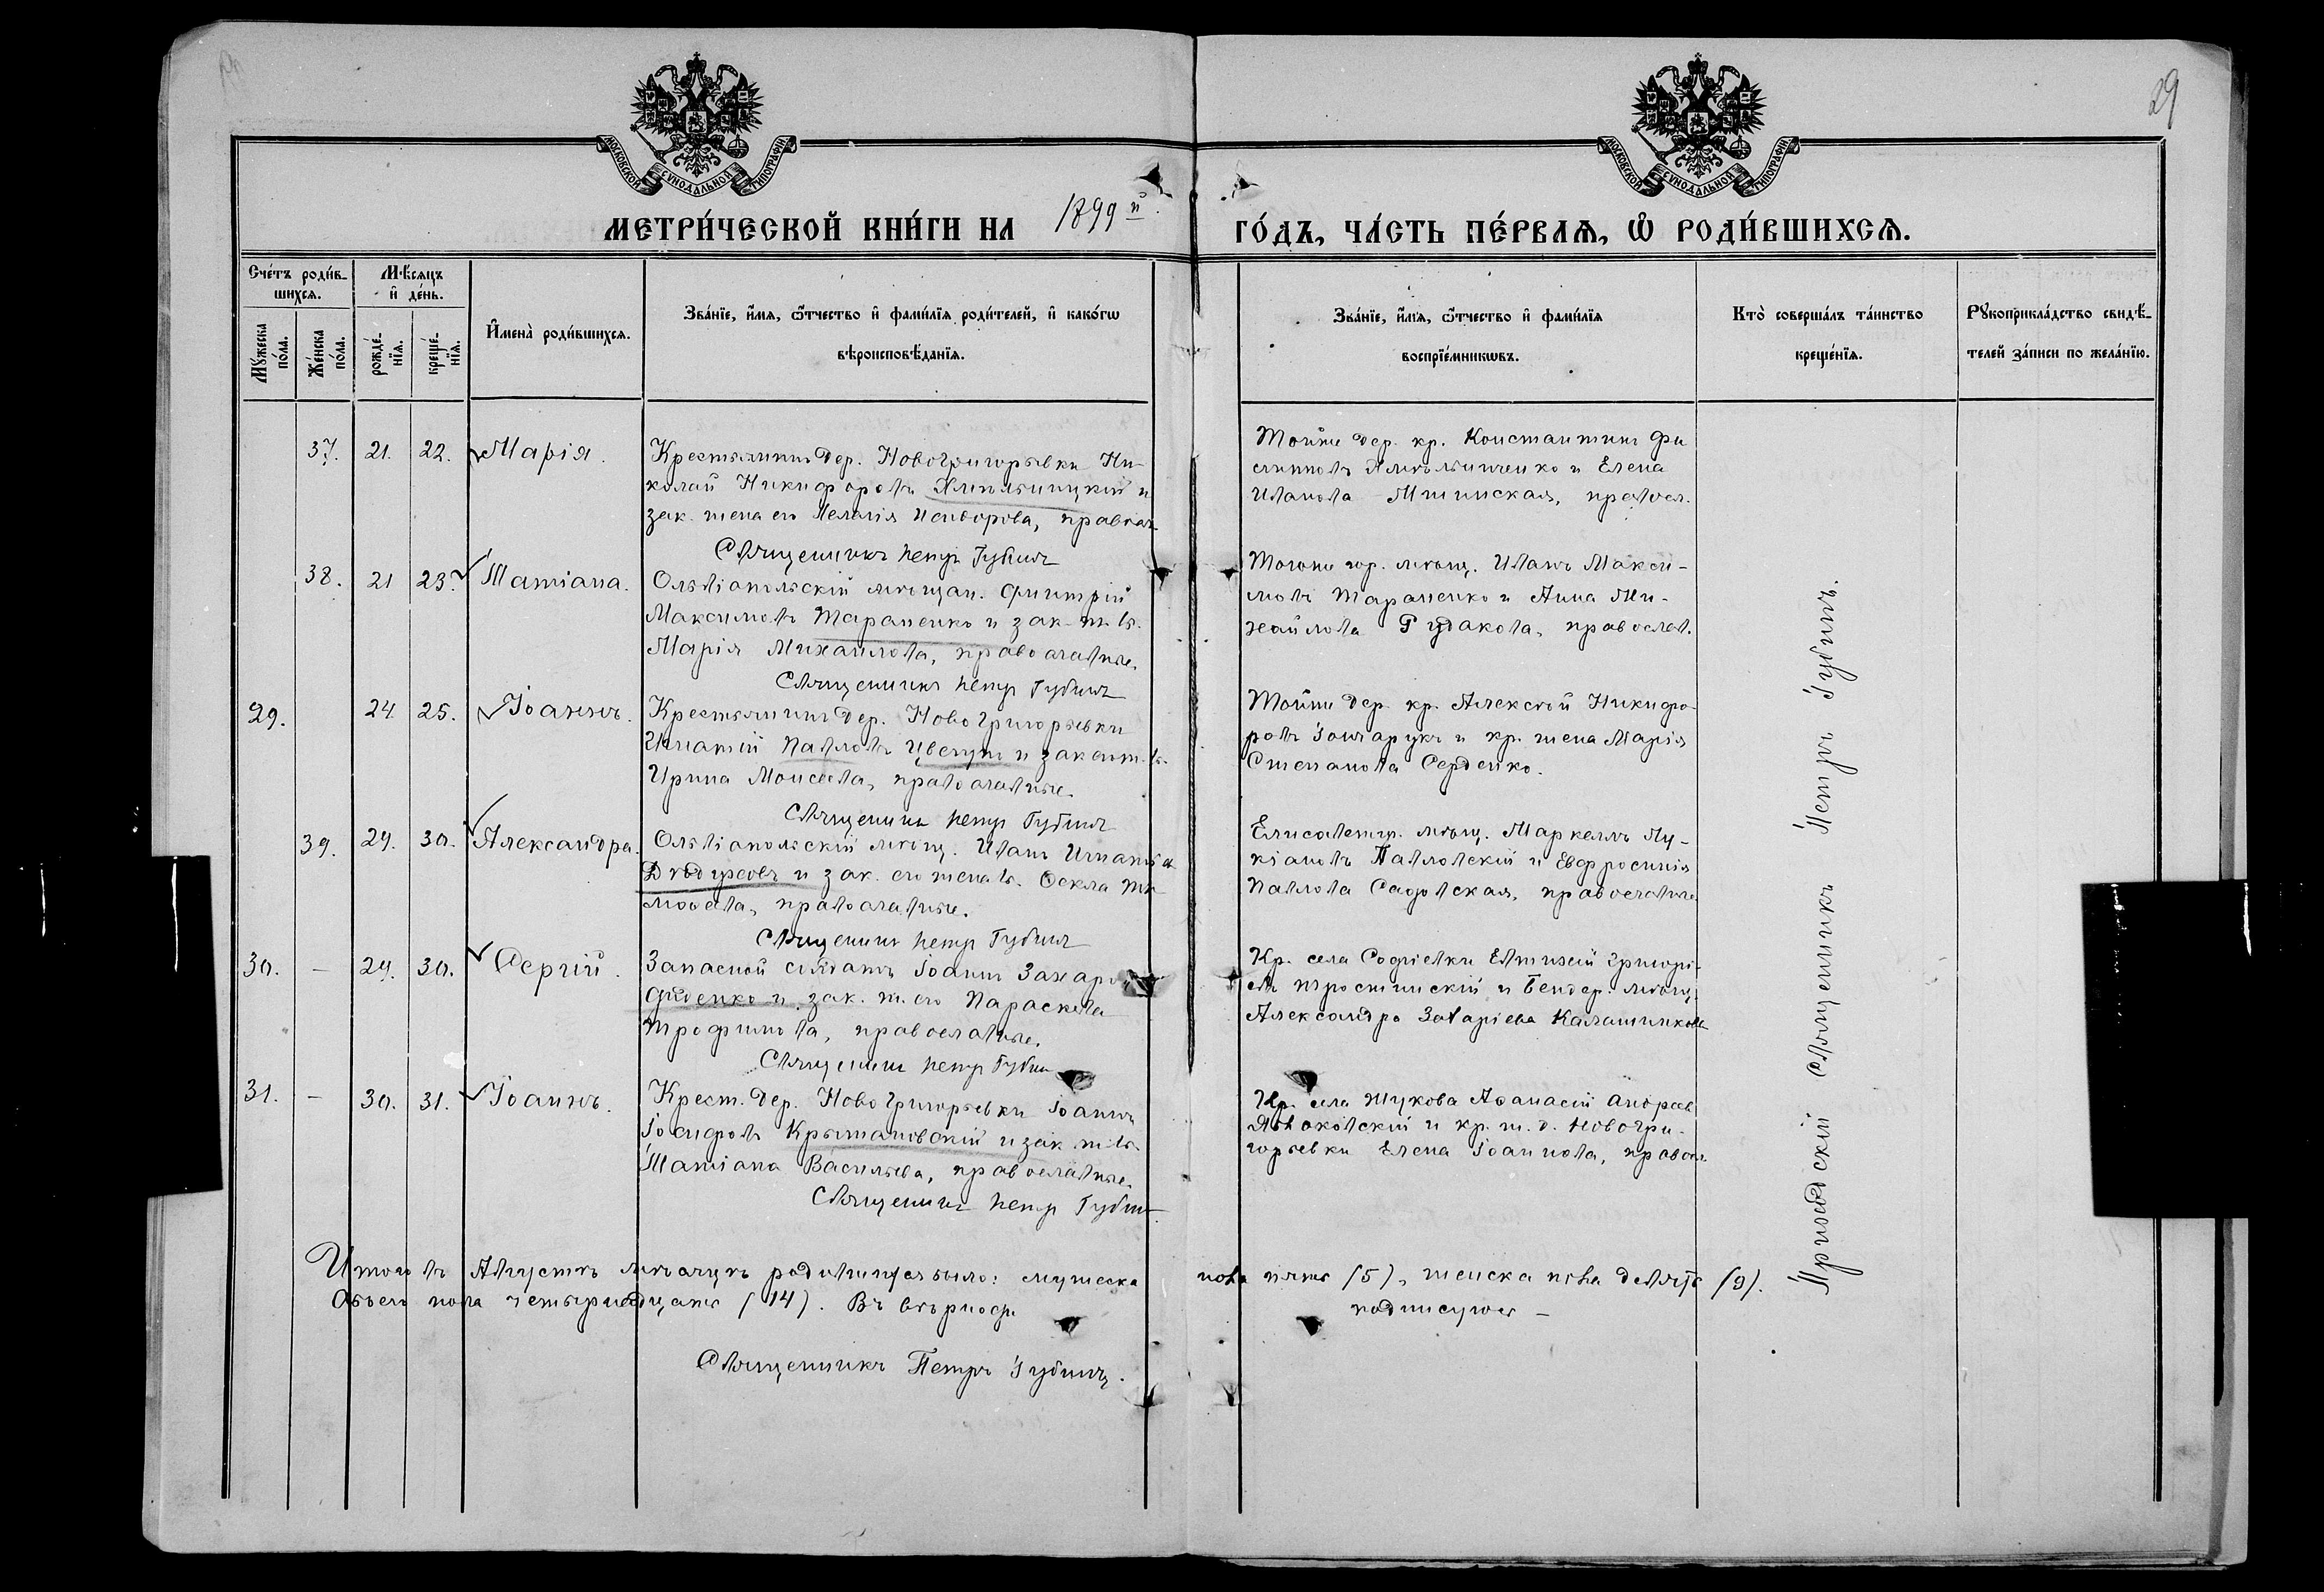 29
МОСКОВСКОЙ СУНОДАЛЬНОЙ ТИПОГРАФІИ
МОСКОВСКОЙ СУНОДАЛЬНОЙ ТИПОГРАФІИ
МЕТРИ́ЧЕСКОЙ КНИ́ГИ НА 1899й
ГО́ДЪ, ЧА́СТЬ ПЕ́РВАѦ, Ѡ҆ РОДИ́ВШИХСѦ.
Сче́тъ роди́в-
шихсѧ.
Мꙋ́жеска
по́ла.
Же́нска
по́ла.
Мѣ́сѧцъ
и҆ де́нь.
рожде́-
нїѧ.
креще́-
нїѧ.
И҆мена̀ роди́вшихсѧ.
Зва́нїе, и҆́мѧ, ѻ҆́тчество и҆ фами́лїѧ роди́телей, и҆ како́гѡ
вѣроисповѣ́данїѧ.
Зва́нїе, и҆́мѧ, ѻ҆́тчество и҆ фами́лїѧ
воспрїе́мникѡвъ.
Кто̀ соверша́лъ та́инство
креще́нїѧ.
Рꙋкоприкла́дство свидѣ́-
телей за́писи по жела́нїю.
37. 21. 22. Марія.
Крестьянинъ дер. Новогригорьевки Ни-
колай Никифоровъ и
зак. жена его Пелагія Исидорова, правосл.
Священникъ Петръ Губинъ
Той же дер. кр. Константинъ Фи
липповъ и Елена
Иванова правосл.
38. 21 23. Татіана.
Ольвіопольскій мѣщан. Димитрій
Максимовъ Тараненко и зак. ж. его
Марія Михайлова, православные.
Священникъ Петръ Губинъ
Того же гор. мѣщ. Иванъ Макси-
мовъ Тараненко и Анна Ми-
хайлова Рудакова, православ.
29. 24. 25. Іоаннъ.
Крестьянинъ дер. Новогригорьевки
Игнатій Павловъ и закон. ж. его
Ирина Моисеева, православные.
Священникъ Петръ Губинъ
Той же дер. кр. Алексѣй Никифо-
ровъ Гончарукъ и кр. жена Марія
Степанова Серденко.
39. 29. 30. Александра.
Ольвіопольскій мѣщ. Иванъ Игнатіевъ
и зак. его жена
православные.
Священникъ Петръ Губинъ
Елисаветгр. мѣщ. Маркеллъ Лу-
кіановъ Павловскій и Евфросинія
Павлова Садовская, православные
30. – 29. 30. Сергій.
Запасной солдатъ Іоаннъ Захаріевъ
Диденко и зак. ж. его Параскева
Трофимова, православные.
Священникъ Петръ Губинъ
Кр. села Софіевки Евтихій Григорі-
евъ и Бендер. мѣщ.
Александра Захаріева Калашникова
31. – 30. 31. Іоаннъ.
Крест. дер. Новогригорьевки Іоаннъ
Іосифовъ Крыжановскій и зак. ж. его
Татіана Васильева, православные.
Священникъ Петръ Губинъ
Кр. села Жукова Аѳанасій Андреевъ
и кр. ж. д. Новогри-
горьевки Елена Іоаннова, правосл.
Священникъ Петръ Губинъ.
Итого въ Августѣ мѣсяцѣ родившихся было: мужеска пола пять (5), женска пола девять (9).
Обоего пола четырнадцать (14). Въ вѣрности подписуюсь –
Священникъ Петръ Губинъ.